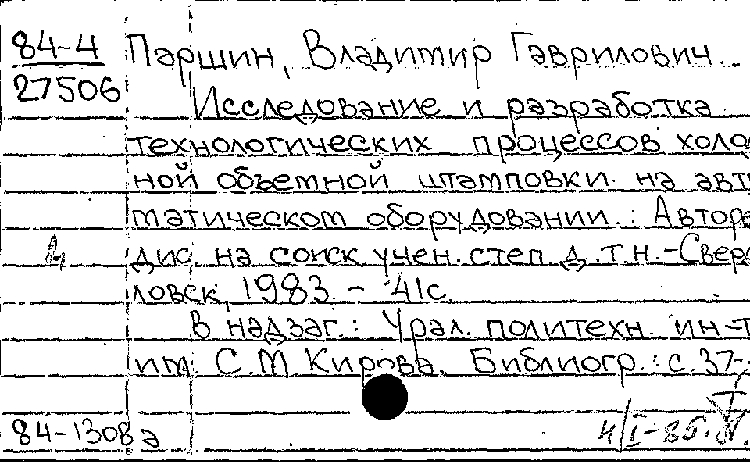 84-4 Паршин, Владимир Гаврилович
27506 Исследование и разработка
технологических процессов холо
ной объемной штамповки на авт
матическом оборудовании.: Авторе
дис. на соиск учен. степ д.т.н.-Свер
ловск, 1983 - 41с.
В надзаг.: Урал. политехн. ин-т
им. С.М Кирова. Библиогр.: с. 37-
84-1308а